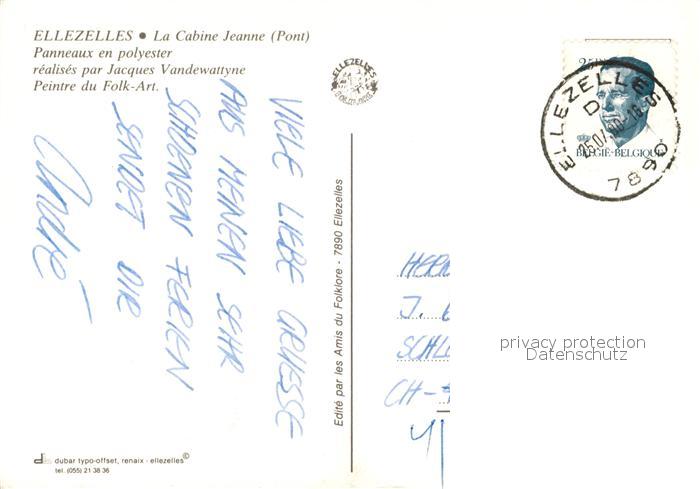 ELLEZELLES • La Cabine Jeanne (Pont)
Panneaux en polyester
réalisés par Jacques Vandewattyne
Peintre du Folk-Art.
VIELE LIEBE GRUESSE
AUS MEINEN SEHR
SCHOENEN FERIEN
SENDET DIR
André
Edité par les Amis du Folklore - 7890 Ellezelles
ELLEZELLES
ELLEZELLES
D
7890
BELGIË-BELGIQUE
HERR
J.
SCHL
CH-
privacy protection
Datenschutz
dubar typo-offset, renaix - ellezelles©
tel. (055) 21 38 36